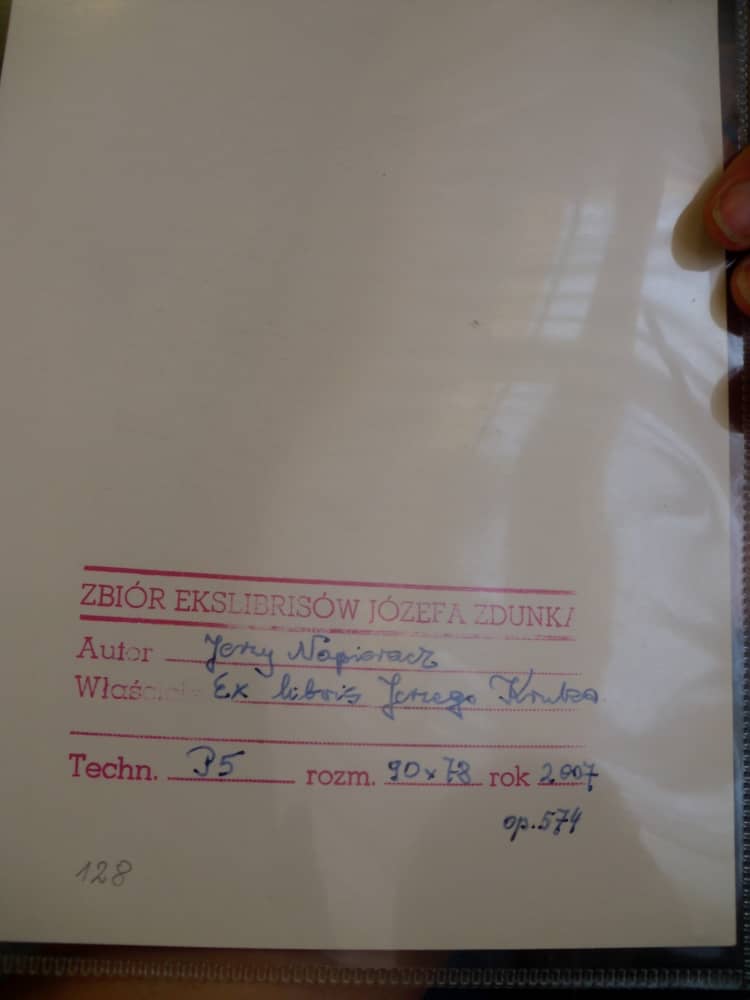 ZBIÓR EKSLIBRISÓW JÓZEFA ZDUNKA
Autor Jerzy Napieracz
Właści Ex libris Jerzego
Techn. P5 rozm. 90x78 rok 2007
op. 574
128